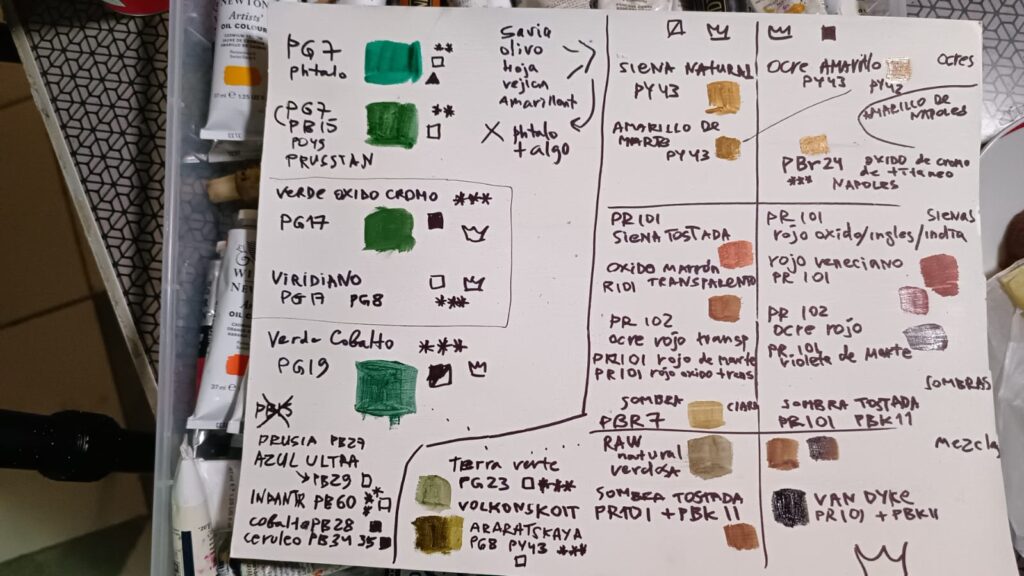 NEWTON
Artists'
OIL COLOUR
PG7
phtalo
PG7
PB15
PRUSIAN
VERDE OXIDO CROMO ***
PG17
VIRIDIANO
PG17 PG8 ***
Verde Cobalto ***
PG19
PRUSIA PB27
AZUL ULTRA
PB29
INDANTR PB60
cobalto PB28
ceruleo PB34 35
Savia
olivo
Hoja
vejiga
Amarillent
X phtalo
+ algo
Tierra verte
PG23 ***
VOLKONSKOIT
ARARATSKAYA
PG8 PY43 ***
SIENA NATURAL
PY43
AMARILLO DE
MARTE
PY43
PR101
SIENA TOSTADA
OXIDO MARRÓN
R101 TRANSPARENTE
PR 102
ocre rojo transp
PR101 rojo de marte
PR101 rojo oxido trans
SOMBRA CLARA
PBR7
RAW
natural
verdosa
SOMBRA TOSTADA
PR101 + PBK11
OCRE AMARILLO
PY43 PY42
OCRES
AMARILLO DE
NAPOLES
PBr24 OXIDO de cromo
de titaneo
*** NAPOLES
PR 101 SIENAS
rojo oxido/ingles/india
rojo veneciano
PR 101
PR 102
ocre rojo
PR 101
violeta de Marte
SOMBRAS
SOMBRA TOSTADA
PR101 PBK11
Mezcla
VAN DYKE
PR101 + PBK11